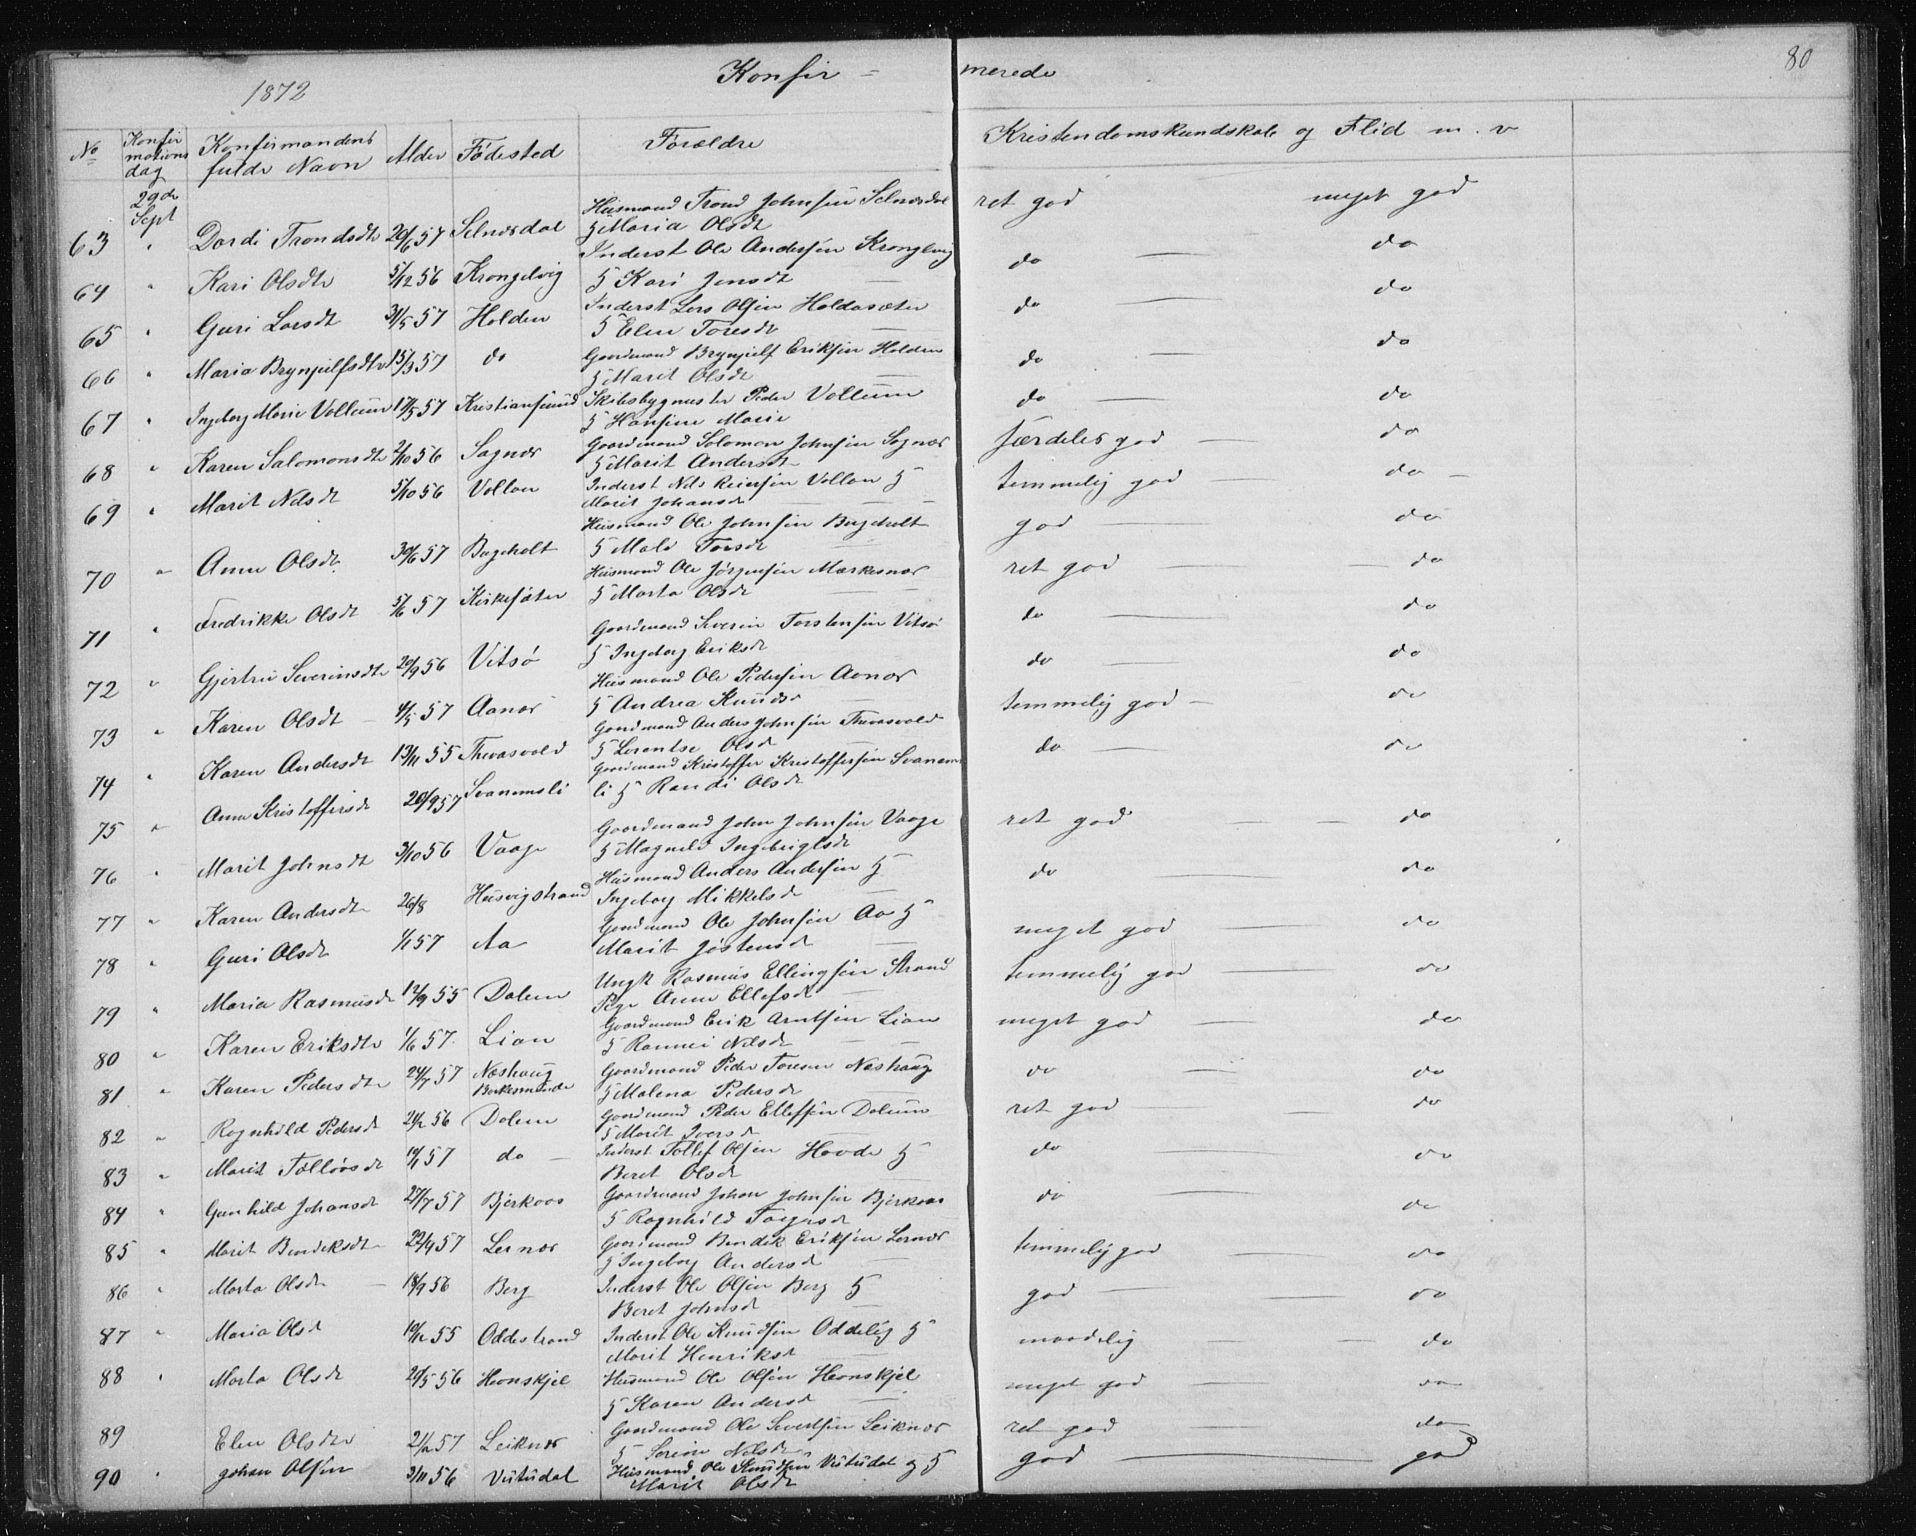 80
1872 Konfir - merede
No Konfirmations dag Konfirmandens fulde Navn Alder Fødested Forældre Kristendomskundskab og Flid m. v
29de Sept
63 " Dordi Trondsdtr 20/6 57 Selnæsdal Husmand Trond Johnsen Selnæsdal
& Maria Olsdt ret god meget god
64 " Kari Olsdtr 5/12 56 Krongelvig Inderst Ole Andersen Krongelvig
& Kari Jensdt do — do
65 " Guri Larsdt 31/5 57 Holden Inderst Lars Olsen Holdasæter
& Elen Toresdt do — do
66 " Maria Brynjulfsdtr 15/3 57 do Gaardmand Brynjulf Eriksen Holden
& Marit Olsdt do — do
67 " Ingeborg Marie Vollum 17/5 57 Kristiansund Skibsbygmester Peder Vollum
& Hansine Marie do — do
68 " Karen Salomonsdtr 2/10 56 Sagnæs Gaardmand Solomon Johnsen Sognæs
& Marit Andersdt særdeles god — do
69 " Marit Nilsdt 5/10 56 Vollan Inderst Nils Reiersen Vollan &
Marit Johansdt temmelig god — do
70 " Anne Olsdt 30/6 57 Bugeholt Husmand Ole Johnsen Bugeholt
& Mali Torsdt god — do
71 " Fredrikke Olsdt 5/6 57 Kirkesæter Husmand Ole Jørgensen Mærkesnæs
& Marta Olsdt ret god — do
72 " Gjertrú Severinsdtr 20/9 56 Vitsø Gaardmand Severin Torstensen Vitsø
& Ingeborg Eriksdt do — do
73 " Karen Olsdt 4/5 57 Aanæs Husmand Ole Pedersen Aanæs
& Andrea Knudsdt do — do
74 " Karen Andersdt 13/11 55 Thevasvold Gaardmand Anders Johnsen Thevasvold
& Lorentse Olsdt temmelig god — do
75 " Anne Kristoffersdt 20/9 57 Svanemsli Gaardmand Kristoffer Kristoffersen Svanem
li & Randi Olsdt do — do
76 " Marit Johnsdt 3/10 56 Vaage Gaardmand John Johnsen Vaage
& Magnild Ingebrigtsdt ret god — do
77 " Karen Andersdtr 26/8 Husvigstrand Husmand Anders Andersen &
Ingeborg Mikkelsdt do — do
78 " Guri Olsdt 1/1 57 Aa Gaardmand Ole Johnsen Aa &
Marit Jøstensdt meget god — do
79 " Maria Rasmusdt 12/9 55 Dalem Ungk Rasmus Ellingsen Strand
Pige Anne Ellefsdt temmelig god — do
80 " Karen Eriksdtr 1/6 57 Lian Gaardmand Erik Arntsen Lian
& Rannei Nilsdt meget god — do
81 " Karen Pedersdtr 24/7 57 Næshaug Gaardmand Peder Toresen Næshaug
& Malena Pedersdt do — do
82 " Ragnhild Pedersdt 21/2 56 Dalem Gaardmand Peder Ellefsen Dalum
& Marit Iversdt ret god — do
83 " Marit Tollevsdt 19/1 57 do Inderst Tollef Olsen Hovde &
Beret Olsdt do — do
84 " Gunhild Johansdt 27/7 57 Bjerkaas Gaardmand Johan Johnsen Bjerkaas
& Ragnhild Torgersdt do — do
85 " Marit Bendiksdt 22/9 57 Lernæs Gaardmand Bendik Eriksen Lernæs
& Ingeborg Andersdt temmelig god — do
86 " Marta Olsdtr 18/9 56 Berg Inderst Ole Olsen Berg &
Beret Johnsdt god — do
87 " Maria Olsd 10/12 55 Oddestrand Inderst Ole Knudsen Oddelig &
Marit Henriksdt maadelig do
88 " Marta Olsdt 20/5 56 Heonskjel Husmand Ole Olsen Heonskjel
& Karen Andersdt meget god — do
89 Elen Olsdtr 21/2 57 Leiknæs Gaardmand Ole Severtsen Leiknæs
& Serine Nilsdt ret god — do
90 " Johan Olsen 3/11 56 Vutudal Husmand Ole Knudsen Vutudal &
Marit Olsdt god — god